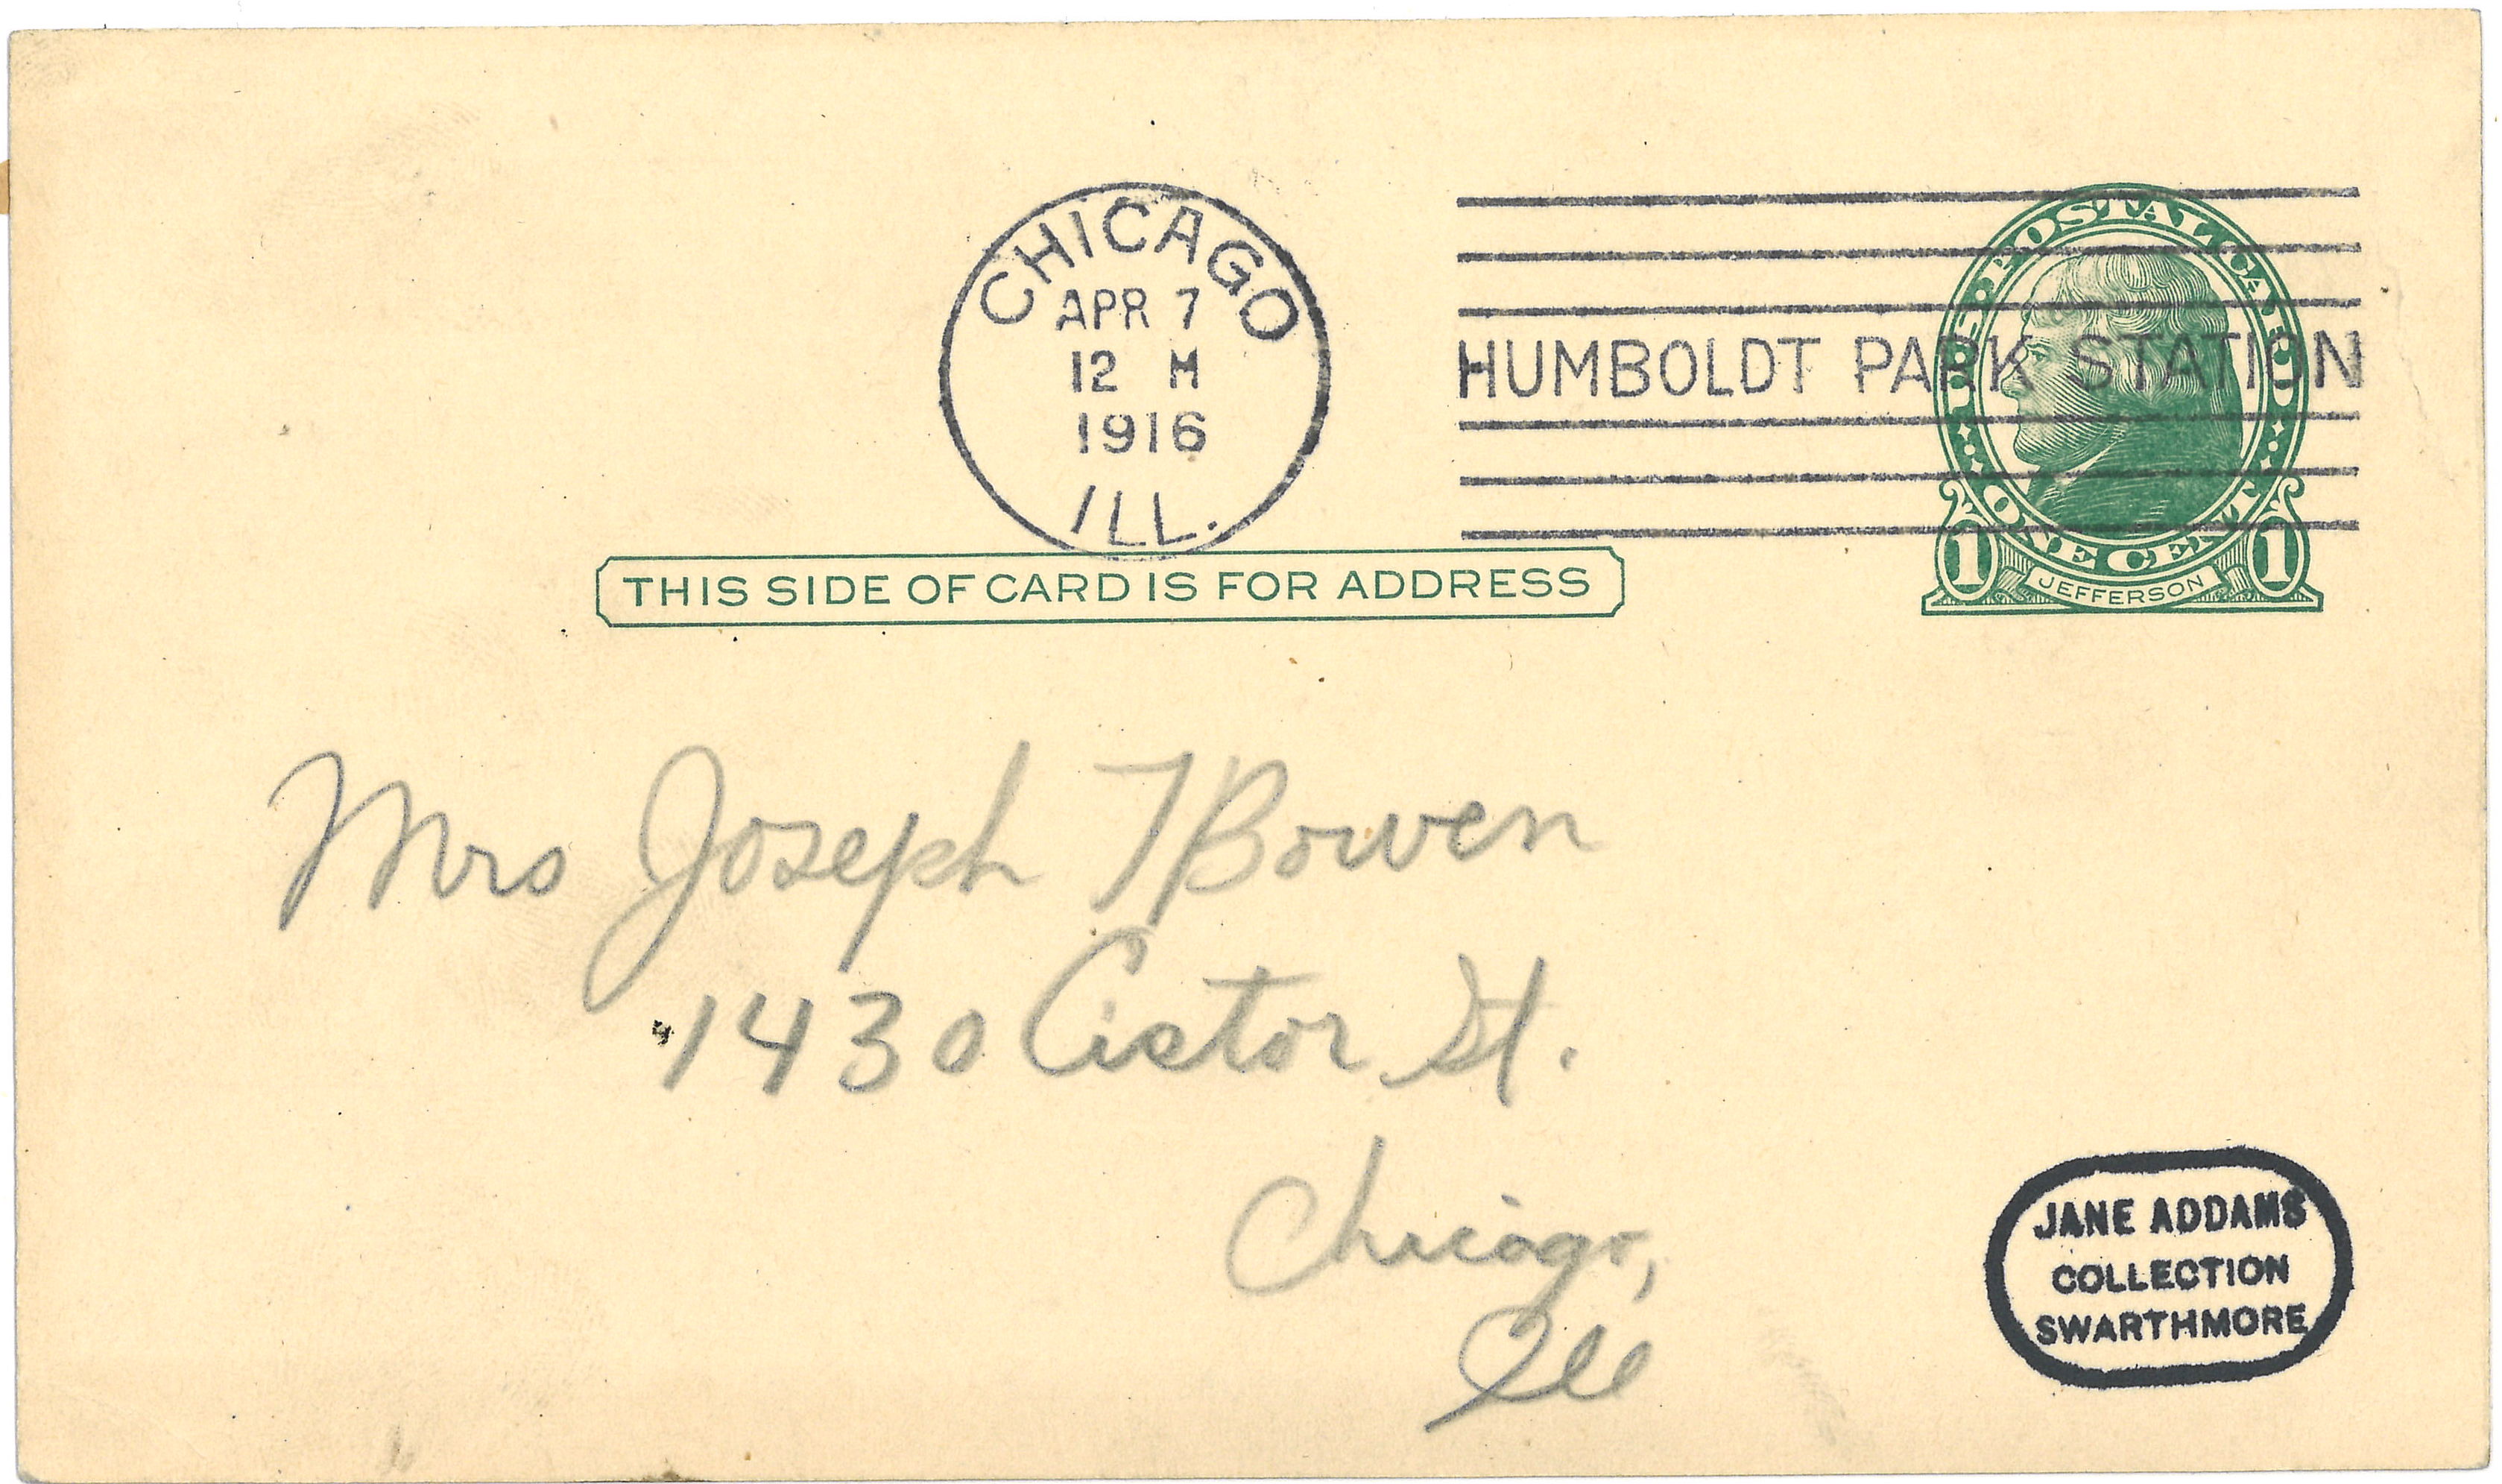 CHICAGO
APR 7
12 M
1916
ILL.
HUMBOLDT PARK STATION
U.S. POSTAL CARD
ONE CENT
1 JEFFERSON 1
THIS SIDE OF CARD IS FOR ADDRESS
Mrs Joseph T Bowen
1430 Astor St.
Chicago,
Ill
JANE ADDAMS
COLLECTION
SWARTHMORE